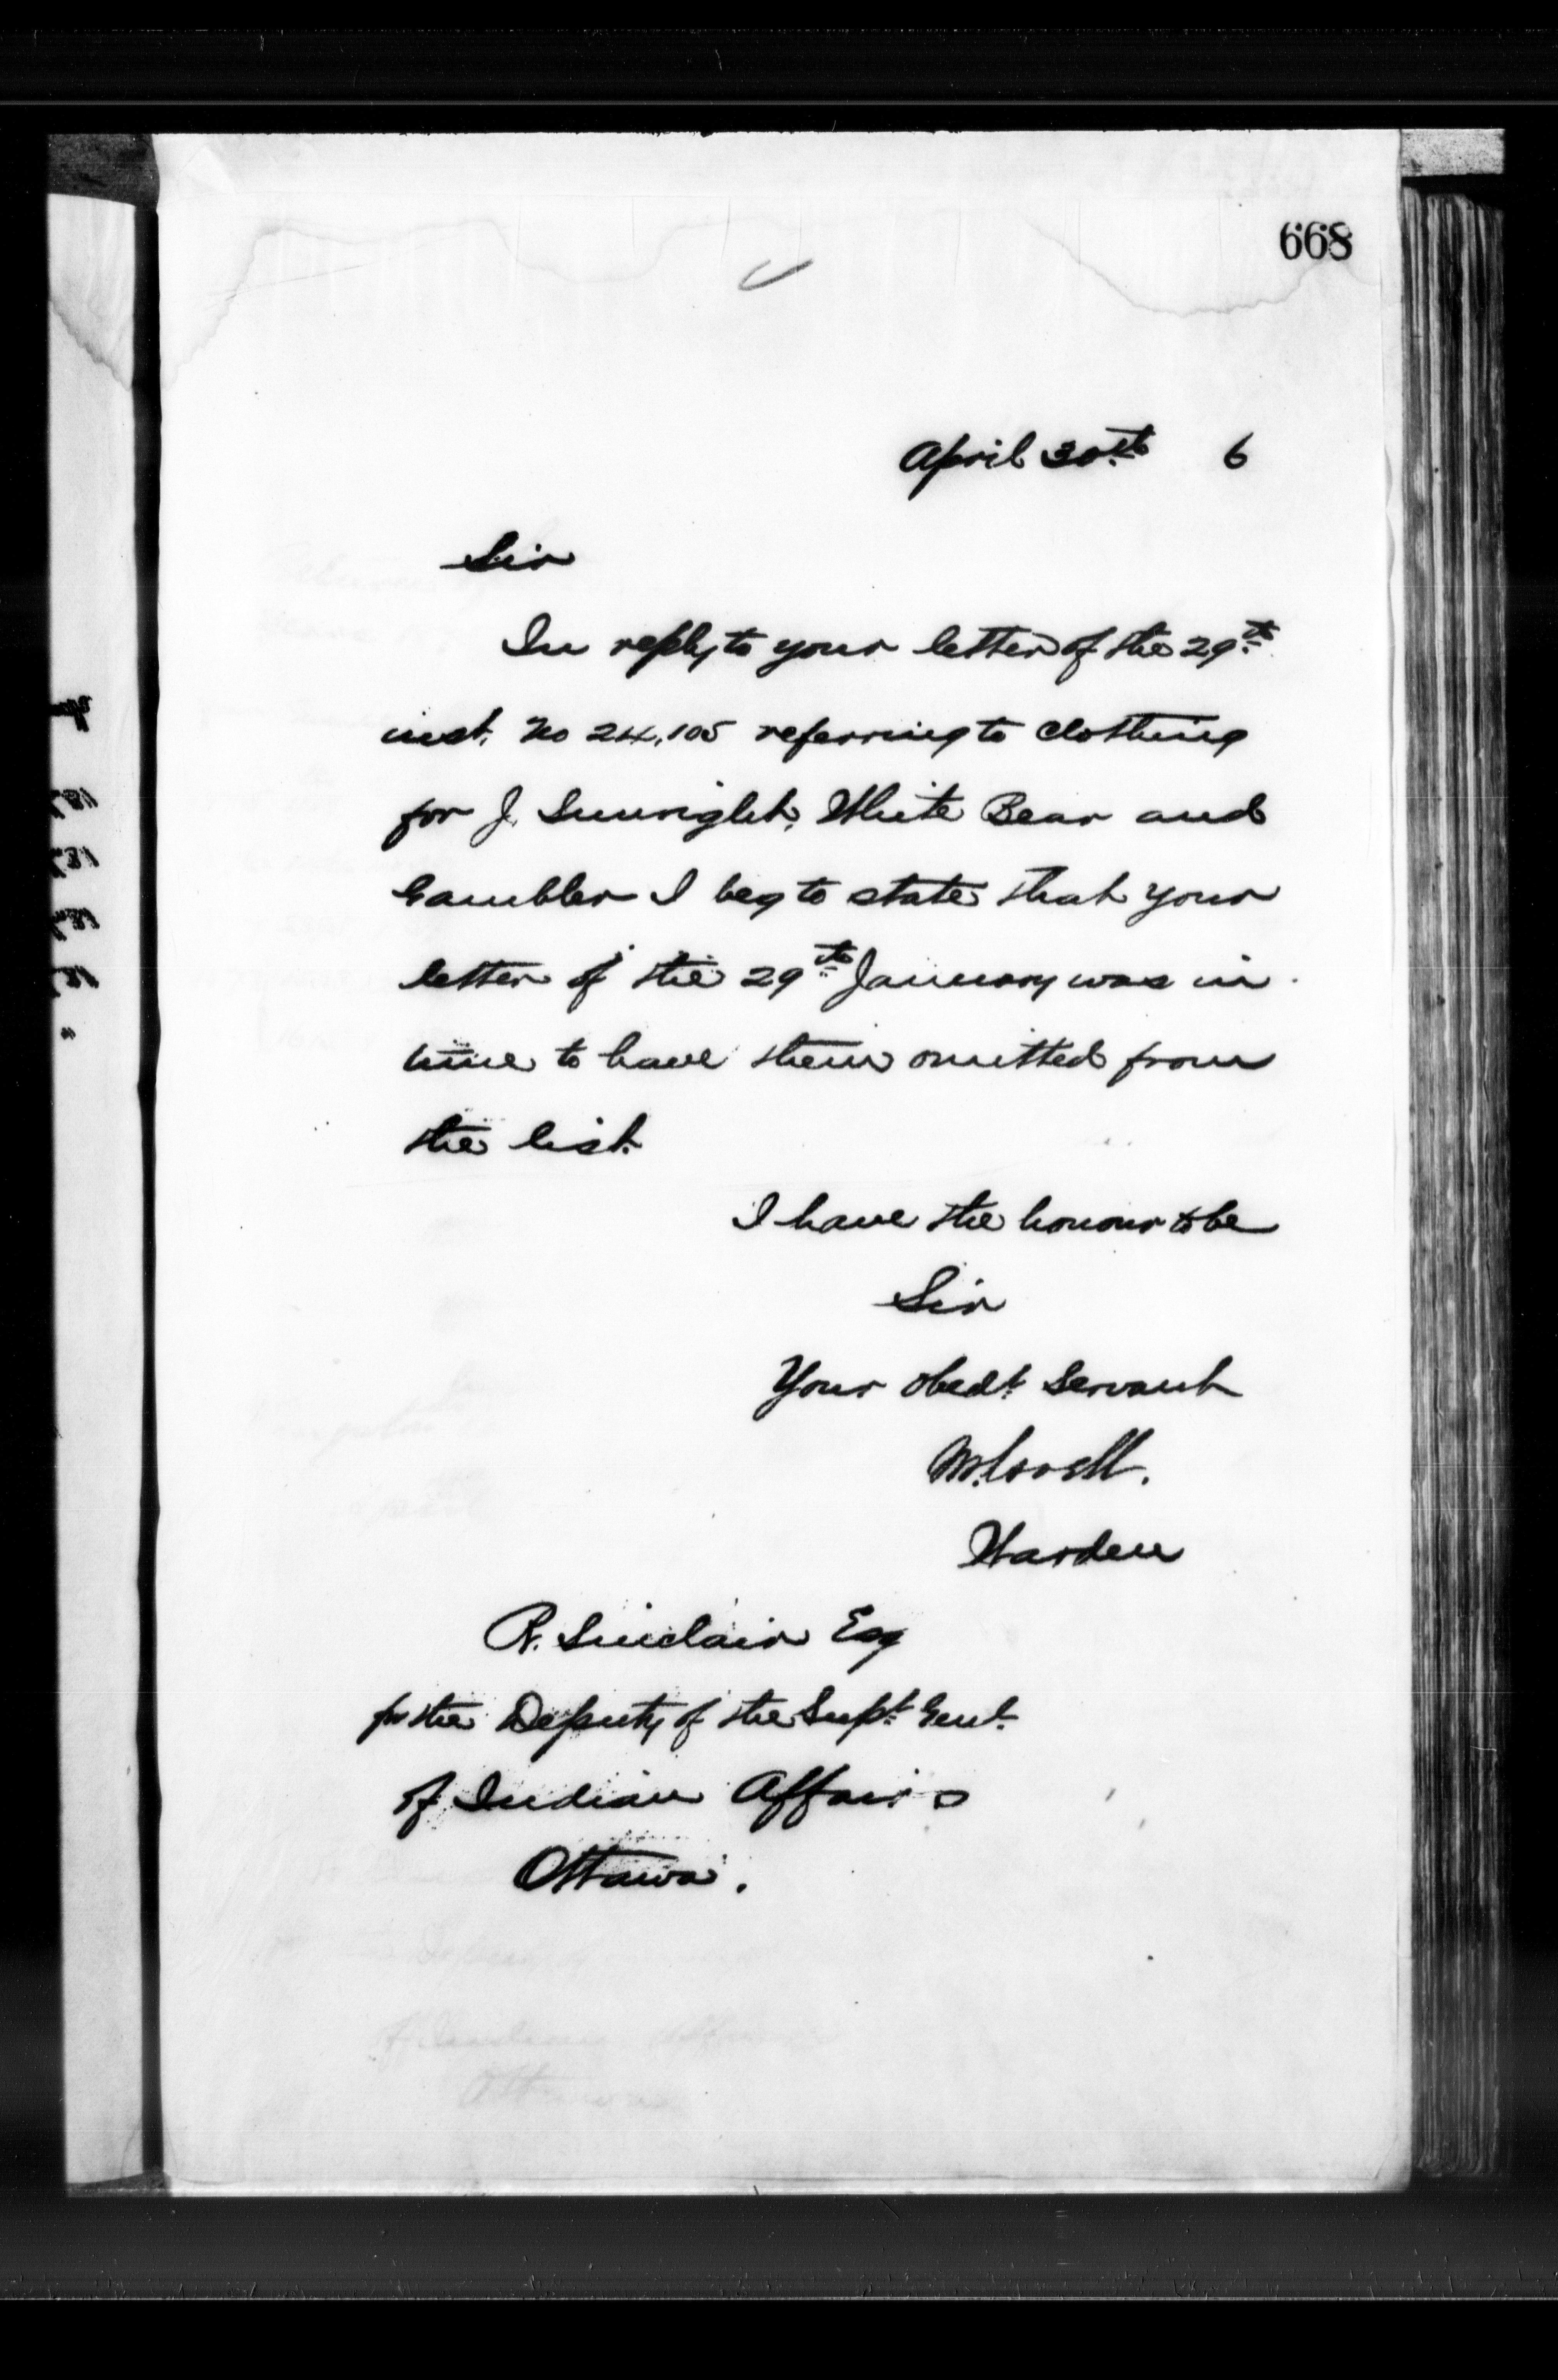 668
April 30th 6
Sir
In reply to your letter of the 29th
inst. No 24,105 referring to clothing
for J. Sunright, White Bear and
Gambler I beg to state that your
letter of the 29th January was in
time to have them omitted from
the list.
I have the honour to be
Sir
Your obedt. Servant
Warden
R. Sinclair Esq
for the Deputy of the Supt. Genl.
of Indian Affairs
Ottawa.